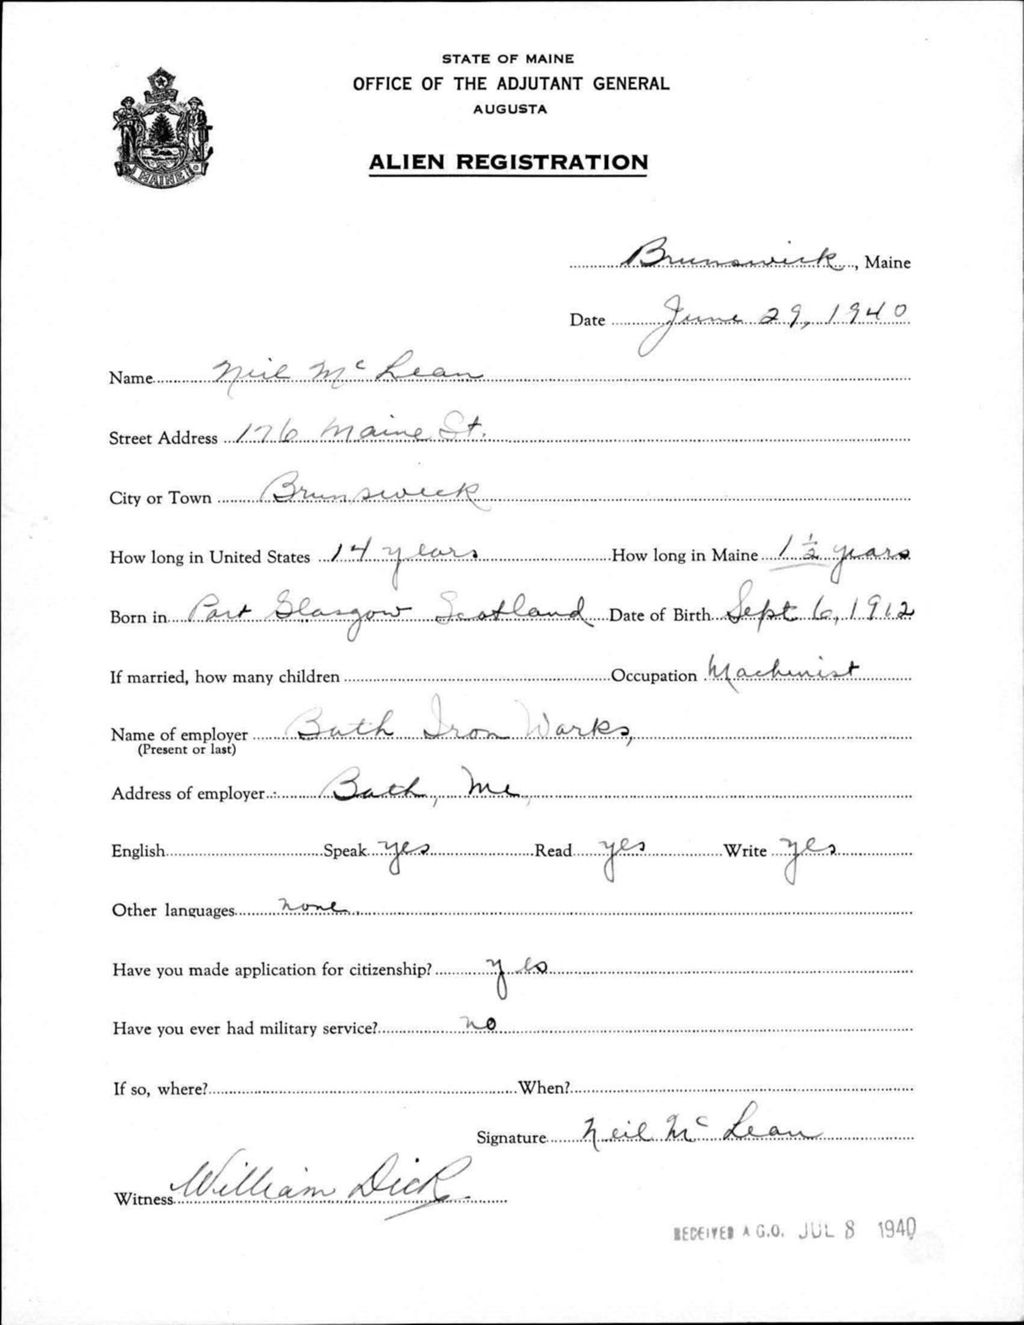 STATE OF MAINE
OFFICE OF THE ADJUTANT GENERAL
AUGUSTA
ALIEN REGISTRATION
MAINE
Brunswick, Maine
Date June 29, 1940
Name Neil McLean
Street Address 176 Maine St.
City or Town Brunswick
How long in United States 14 years How long in Maine 1 1/2 years
Born in Port Glasgow Scotland Date of Birth Sept 6, 1912
If married, how many children Occupation Machinist
Name of employer Bath Iron Works,
(Present or last)
Address of employer Bath, Me,
English Speak yes Read yes Write yes
Other languages none.
Have you made application for citizenship? yes
Have you ever had military service? no
If so, where? When?
Signature Neil McLean
Witness William Dick
RECEIVED A.G.O. JUL 8 1940